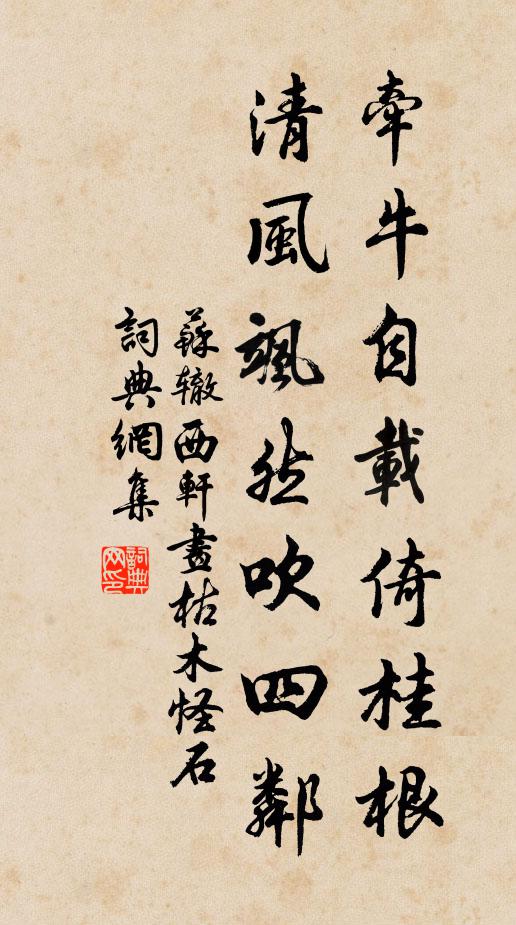 牽牛自載倚桂根
清風颯然吹四鄰
蘇辙西軒畫枯木怪石
詞典網集
詞典网印